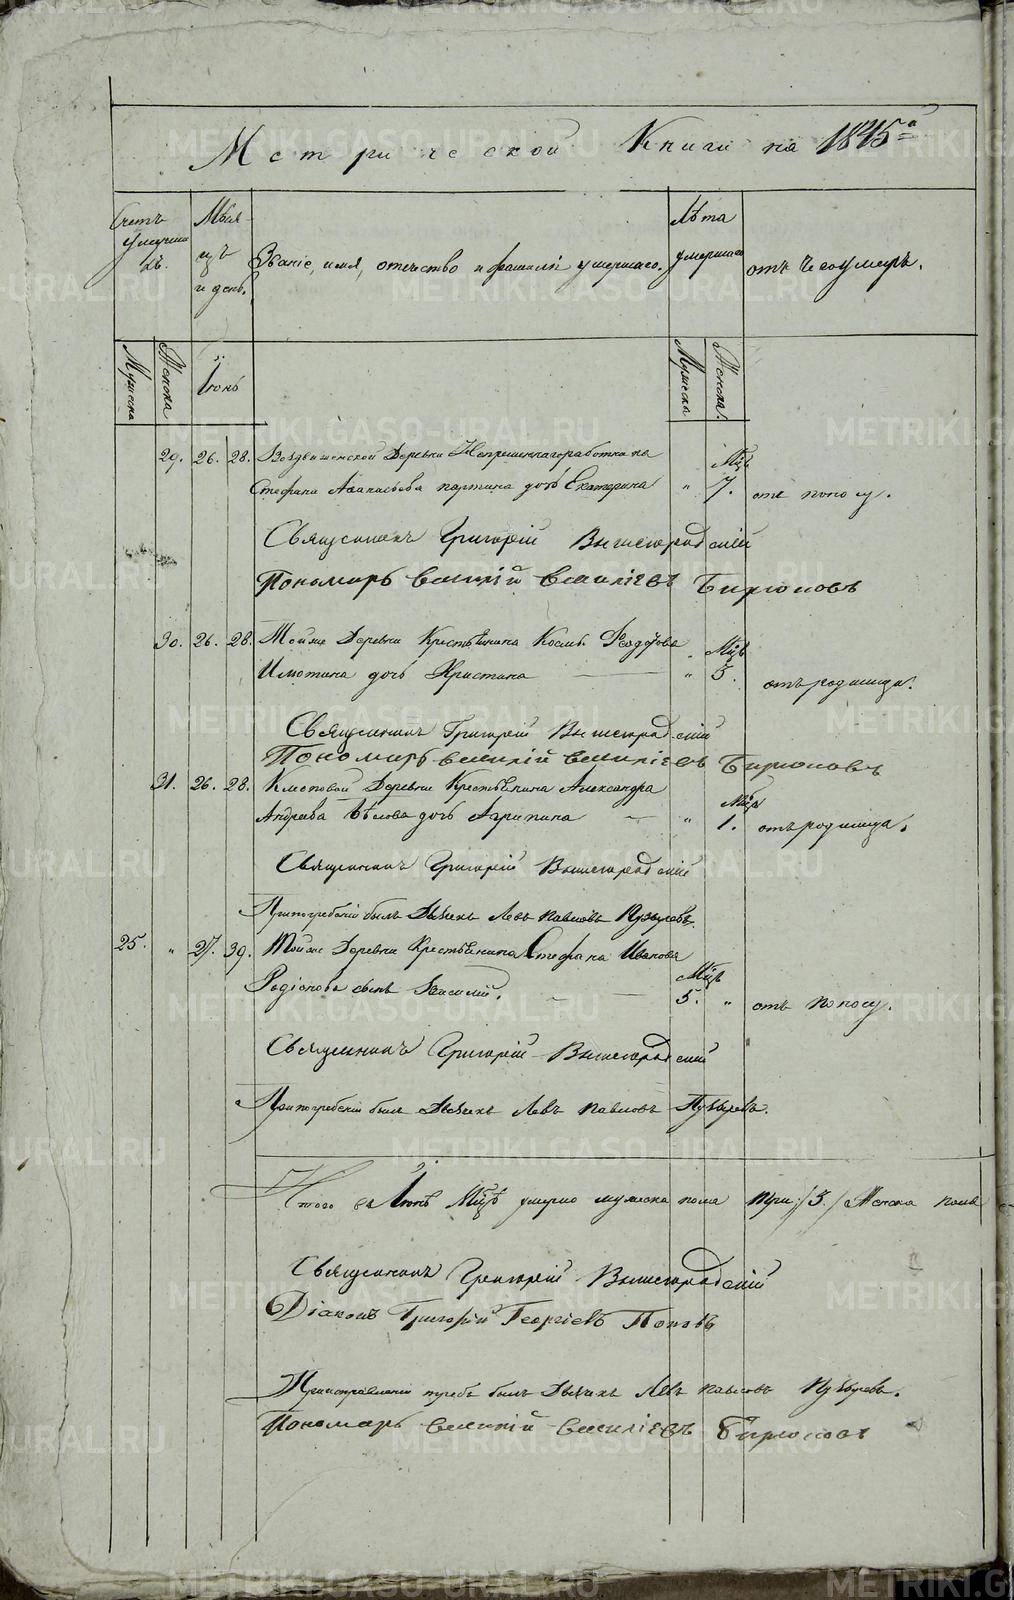 Метрической Книги на 1845а
Счетъ умерших
Мѣсяцъ и день.
Званіе, имя, отчество и фамилія умершаго.
Лѣта умершаго
отъ чего умеръ.
Мужеска
Женска
Іюнь
Мужеска
Женска.
29. 26. 28. Воздвиженской Деревни Непременнаго работника Мцъ
Стефана Аѳанасьева дочь Екатерина " 7. отъ поносу.
Священникъ Григорій Вышегородскій
Пономарь Василій Василіевъ Бирюковъ
30. 26. 28. Тойже Деревни Крестьянина Космы Ѳеодорова Мцъ
дочь Христина " 5. отъ родимца.
Священникъ Григорій Вышегородскій
Пономарь Василій Василіевъ Бирюковъ
31. 26. 28. Деревни Крестьянина Александра Мцъ
Андреева Бѣлова дочь Агрипина " 1. отъ родимца.
Священникъ Григорій Вышегородскій
При погребеніи былъ Дьячекъ Левъ Павловъ Пузыревъ.
25. " 27. 39. Тойже Деревни Крестьянина Стефана Иванова Мцъ
Родіонова сынъ Василій. 5. " отъ поносу.
Священникъ Григорій Вышегородскій
При погребеніи былъ Дьячекъ Левъ Павловъ Пузыревъ.
Итого въ Іюнѣ Мцѣ умерло мужеска пола три /3./ Женска пола
Священникъ Григорій Вышегородскій
Діаконъ Григорій Георгіевъ Поповъ
При исправленіи требъ былъ Дьячекъ Левъ Павловъ Пузыревъ.
Пономарь Василій Василіевъ Бирюковъ
METRIKI.GASO-URAL.RU